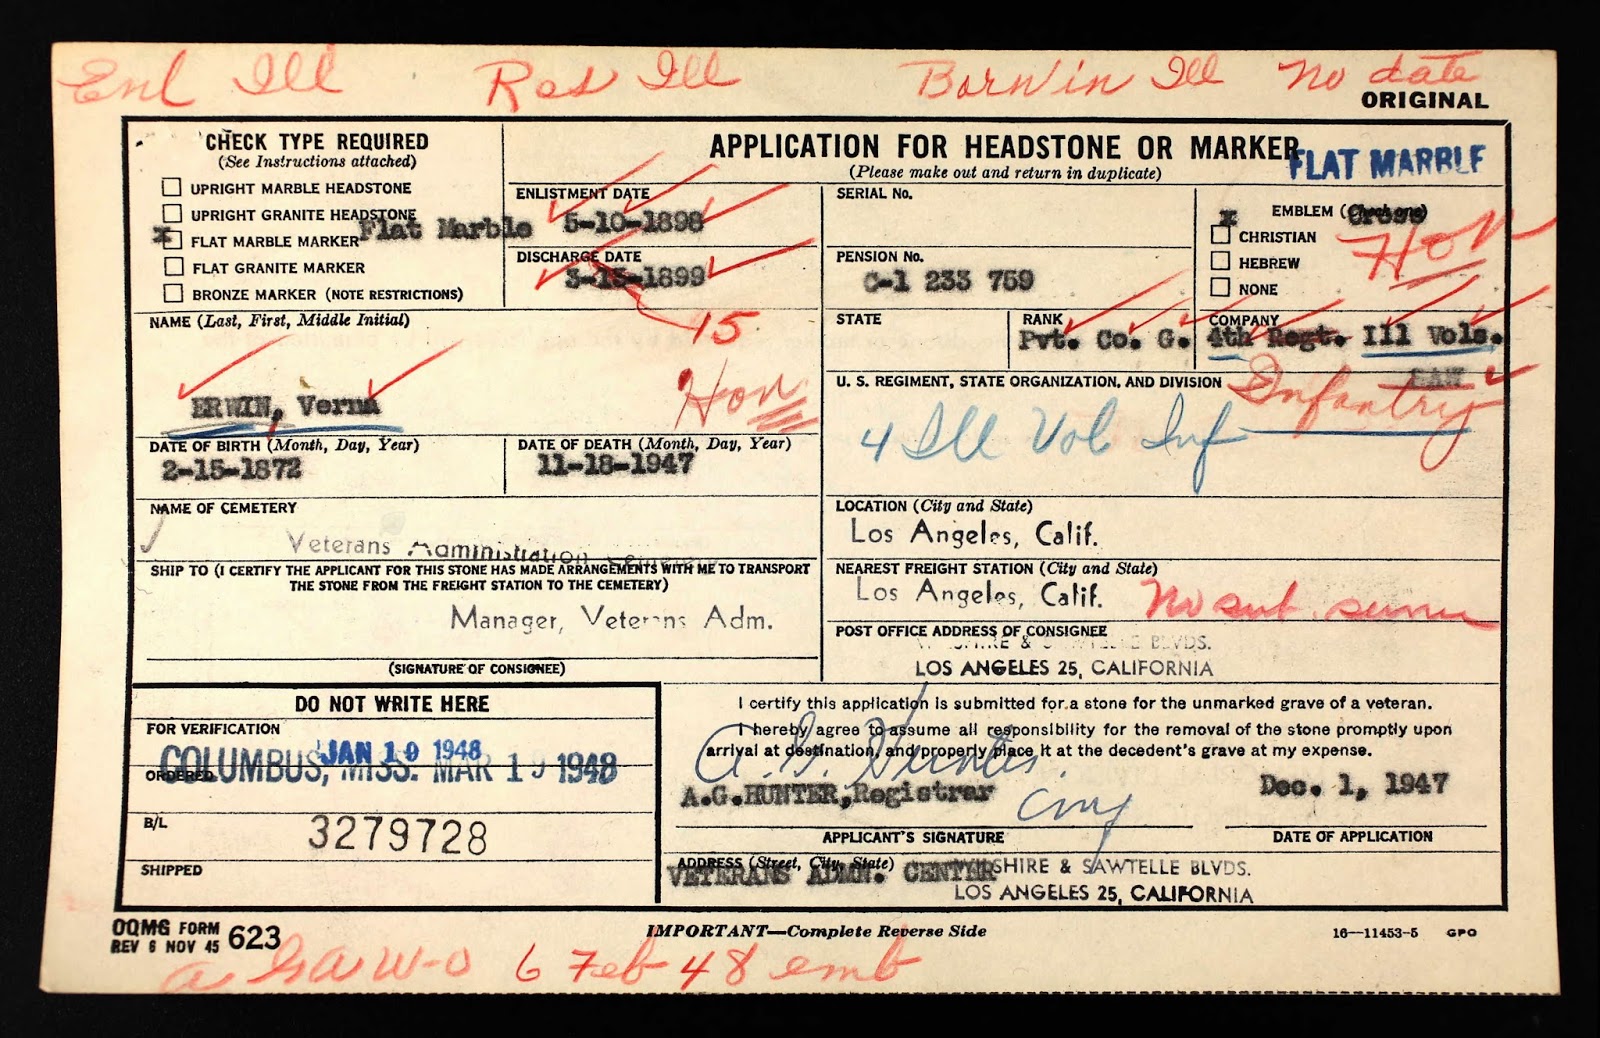 Enl Ill Res Ill Born in Ill No date
ORIGINAL
CHECK TYPE REQUIRED
(See Instructions attached)
UPRIGHT MARBLE HEADSTONE
UPRIGHT GRANITE HEADSTONE
x FLAT MARBLE MARKER Flat Marble
FLAT GRANITE MARKER
BRONZE MARKER (NOTE RESTRICTIONS)
APPLICATION FOR HEADSTONE OR MARKER
(Please make out and return in duplicate)
FLAT MARBLE
ENLISTMENT DATE
5-10-1898
DISCHARGE DATE
3-15-1899
15
SERIAL No.
PENSION No.
C-1 233 759
EMBLEM (Check one)
Cross
x
CHRISTIAN
HEBREW
NONE
Hon
NAME (Last, First, Middle Initial)
ERWIN, Verna
Hon
STATE
RANK
Pvt. Co. G.
COMPANY
4th Regt. Ill Vols.
SAW
U. S. REGIMENT, STATE ORGANIZATION, AND DIVISION
Infantry
4 Ill Vol Inf
DATE OF BIRTH (Month, Day, Year)
2-15-1872
DATE OF DEATH (Month, Day, Year)
11-18-1947
NAME OF CEMETERY
Veterans Administration Cemetery
LOCATION (City and State)
Los Angeles, Calif.
SHIP TO (I CERTIFY THE APPLICANT FOR THIS STONE HAS MADE ARRANGEMENTS WITH ME TO TRANSPORT
THE STONE FROM THE FREIGHT STATION TO THE CEMETERY)
Manager, Veterans Adm.
(SIGNATURE OF CONSIGNEE)
NEAREST FREIGHT STATION (City and State)
Los Angeles, Calif.
No sub.
POST OFFICE ADDRESS OF CONSIGNEE
WILSHIRE & SAWTELLE BLVDS.
LOS ANGELES 25, CALIFORNIA
DO NOT WRITE HERE
FOR VERIFICATION
JAN 19 1948
ORDERED
COLUMBUS, MISS. MAR 19 1948
B/L
3279728
SHIPPED
I certify this application is submitted for a stone for the unmarked grave of a veteran.
I hereby agree to assume all responsibility for the removal of the stone promptly upon
arrival at destination, and properly place it at the decedent's grave at my expense.
A. G. Hunter
A.G.HUNTER, Registrar
Dec. 1, 1947
APPLICANT'S SIGNATURE
DATE OF APPLICATION
ADDRESS (Street, City, State)
VETERANS ADMN. CENTER WILSHIRE & SAWTELLE BLVDS.
LOS ANGELES 25, CALIFORNIA
OQMG FORM 623
REV 6 NOV 45
IMPORTANT—Complete Reverse Side
16—11453-5 GPO
6 Feb 48 emb